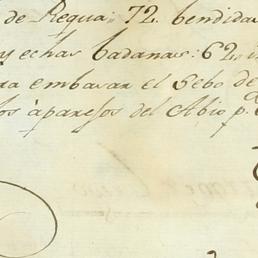 de Regua: 72. bendidas
y echas badanas: 62.
embasar el Sebo de
los àparejos del Abio p.